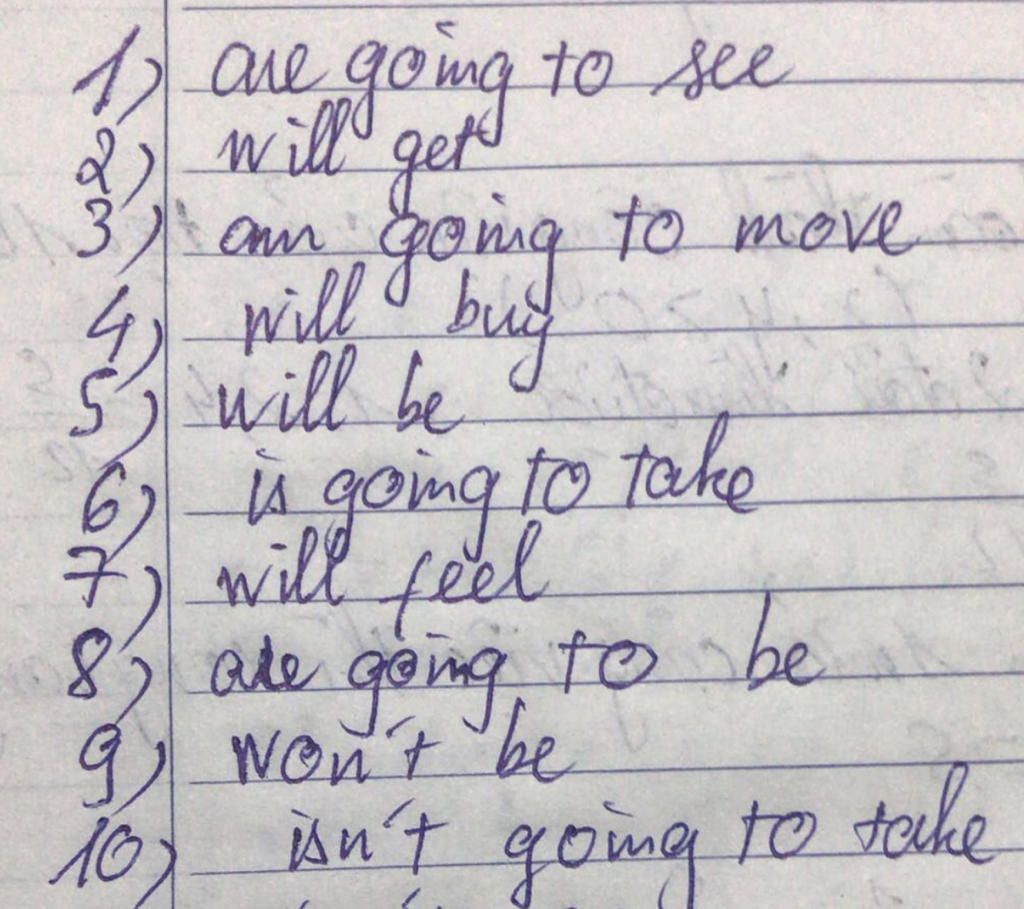 1) are going to see
2) will get
3) am going to move
4) will buy
5) will be
6) is going to take
7) will feel
8) are going to be
9) won't be
10) isn't going to take